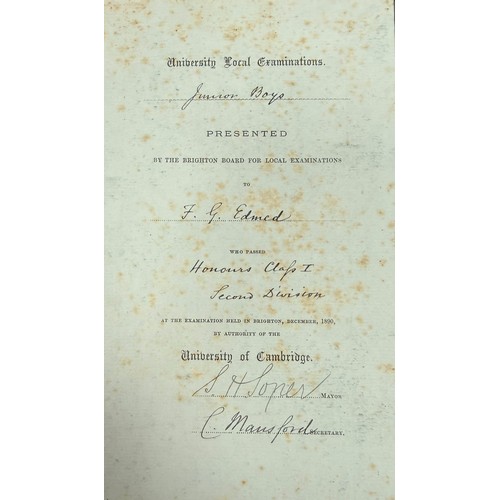 University Local Examinations.
Junior Boys
PRESENTED
BY THE BRIGHTON BOARD FOR LOCAL EXAMINATIONS
TO
F. G. Edmed
WHO PASSED
Honours Class I
Second Division
AT THE EXAMINATION HELD IN BRIGHTON, DECEMBER, 1890,
BY AUTHORITY OF THE
University of Cambridge.
S. H. Soper MAYOR
C. Mansford SECRETARY.